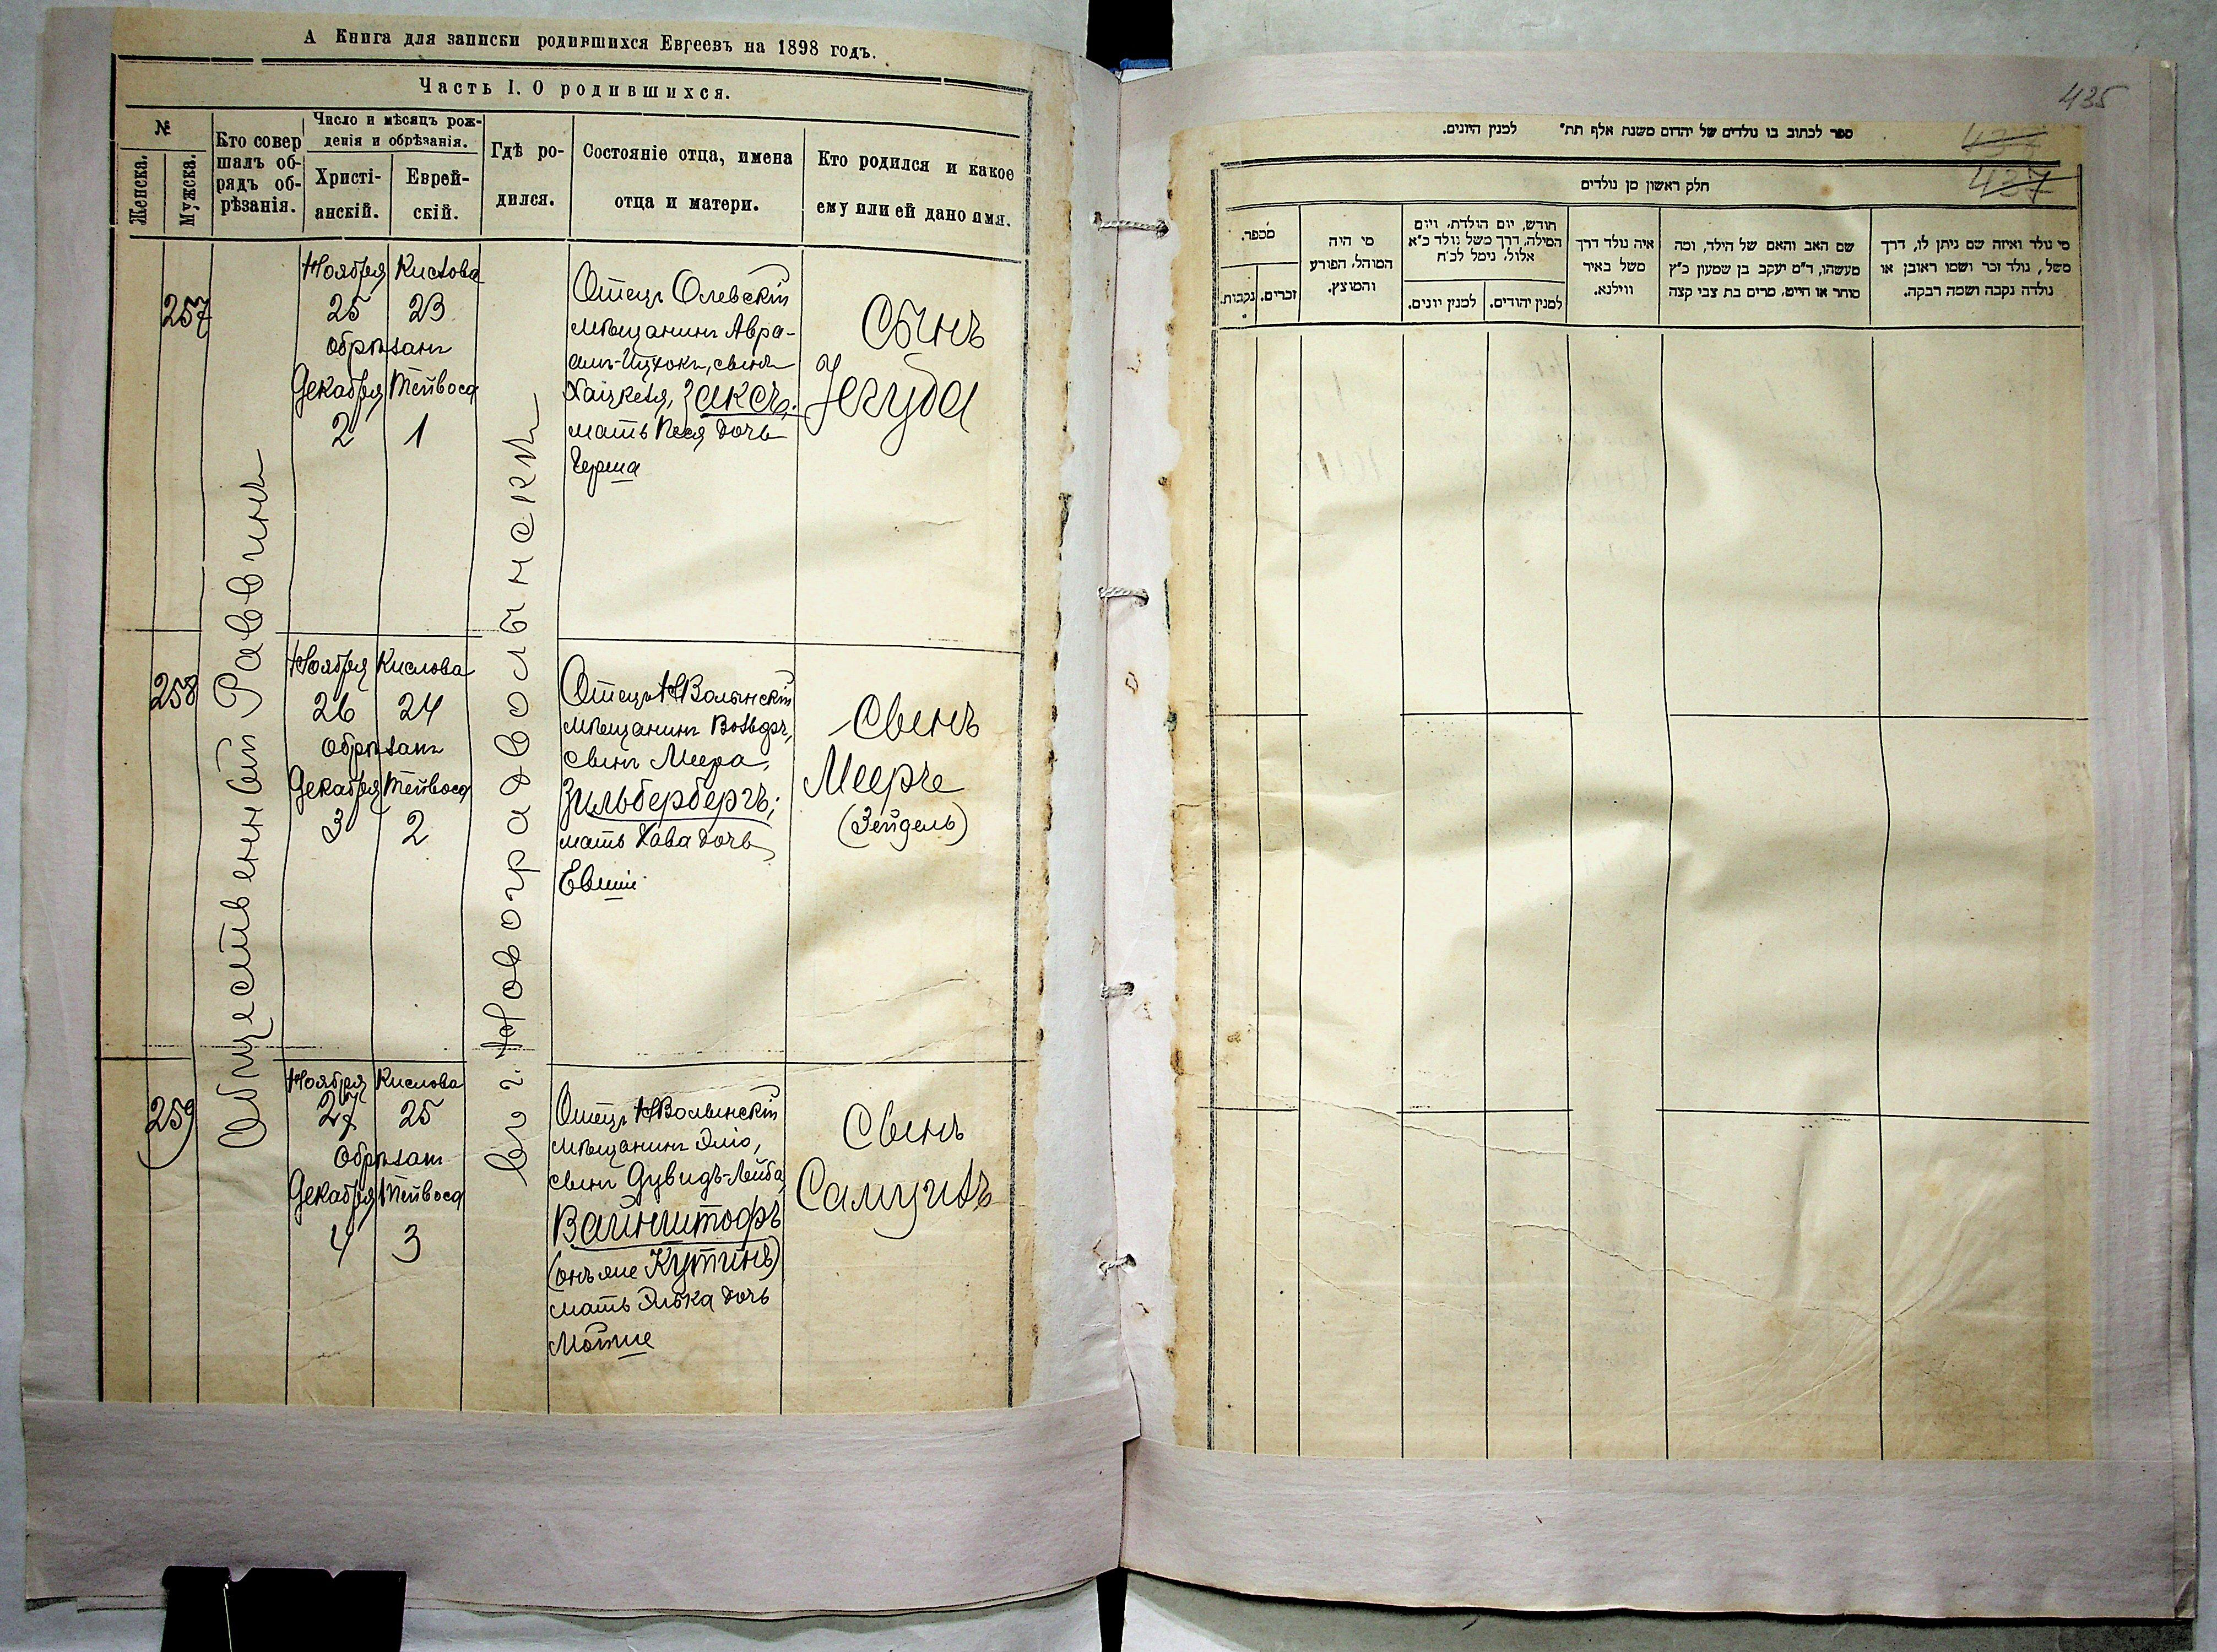 А Книга для записки родившихся Евреевъ на 1898 годъ.
Часть I. О родившихся.
№
Женска.
Мужска.
Кто совер
шалъ об-
рядъ об-
рѣзанія.
Число и мѣсяцъ рож-
денія и обрѣзанія.
Христі-
анскій.
Еврей-
скій.
Гдѣ ро-
дился.
Состояніе отца, имена
отца и матери.
Кто родился и какое
ему или ей дано имя.
Общественный Раввинъ
въ г. Новоградволынскѣ
257
Ноября Кислова
25 23
обрѣзанъ
Декабря Тейвоса
2 1
Отецъ Олевскій
мѣщанинъ Авра-
амъ-Ицхокъ, сынъ
Хаіцкеля, Заксъ;
мать Песя дочь
Герша
Сынъ
Іегуда
258
Ноября Кислова
26 24
обрѣзанъ
Декабря Тейвоса
3 2
Отецъ НВолынскій
мѣщанинъ Вольфъ,
сынъ Меера,
Зильбербергъ;
мать Хава дочь
Евшіи
Сынъ
Меерче
(Зейдель)
259
Ноября Кислова
27 25
Обрѣзанъ
Декабря Тейвоса
4 3
Отецъ НВолынскій
мѣщанинъ Эліо,
сынъ Дувидъ-Лейба
Вайнштофъ
(онъ же Кутинъ)
мать Элька дочь
Мотше
Сынъ
Самуилъ
435
437
ספר לכתוב בו נולדים של יהדום משנת אלף תת״ למנין היונים.
חלק ראשון מן נולדים
מספר.
נקבות.
זכרים.
מי היה
המוהל, הפורע
והמוצץ.
חודש, יום הולדת, ויום
המילה, דרך משל נולד כ״א
אלול, נימל לכ״ח
למנין יונים.
למנין יהודים.
איה נולד דרך
משל באיר
ווילנא.
שם האב והאם של הילד, ומה
מעשהו, ד״מ יעקב בן שמעון כ״ץ
סוחר או חייט, מרים בת צבי קצה
מי נולד ואיזה שם ניתן לו, דרך
משל, נולד זכר ושמו ראובן או
נולדה נקבה ושמה רבקה.